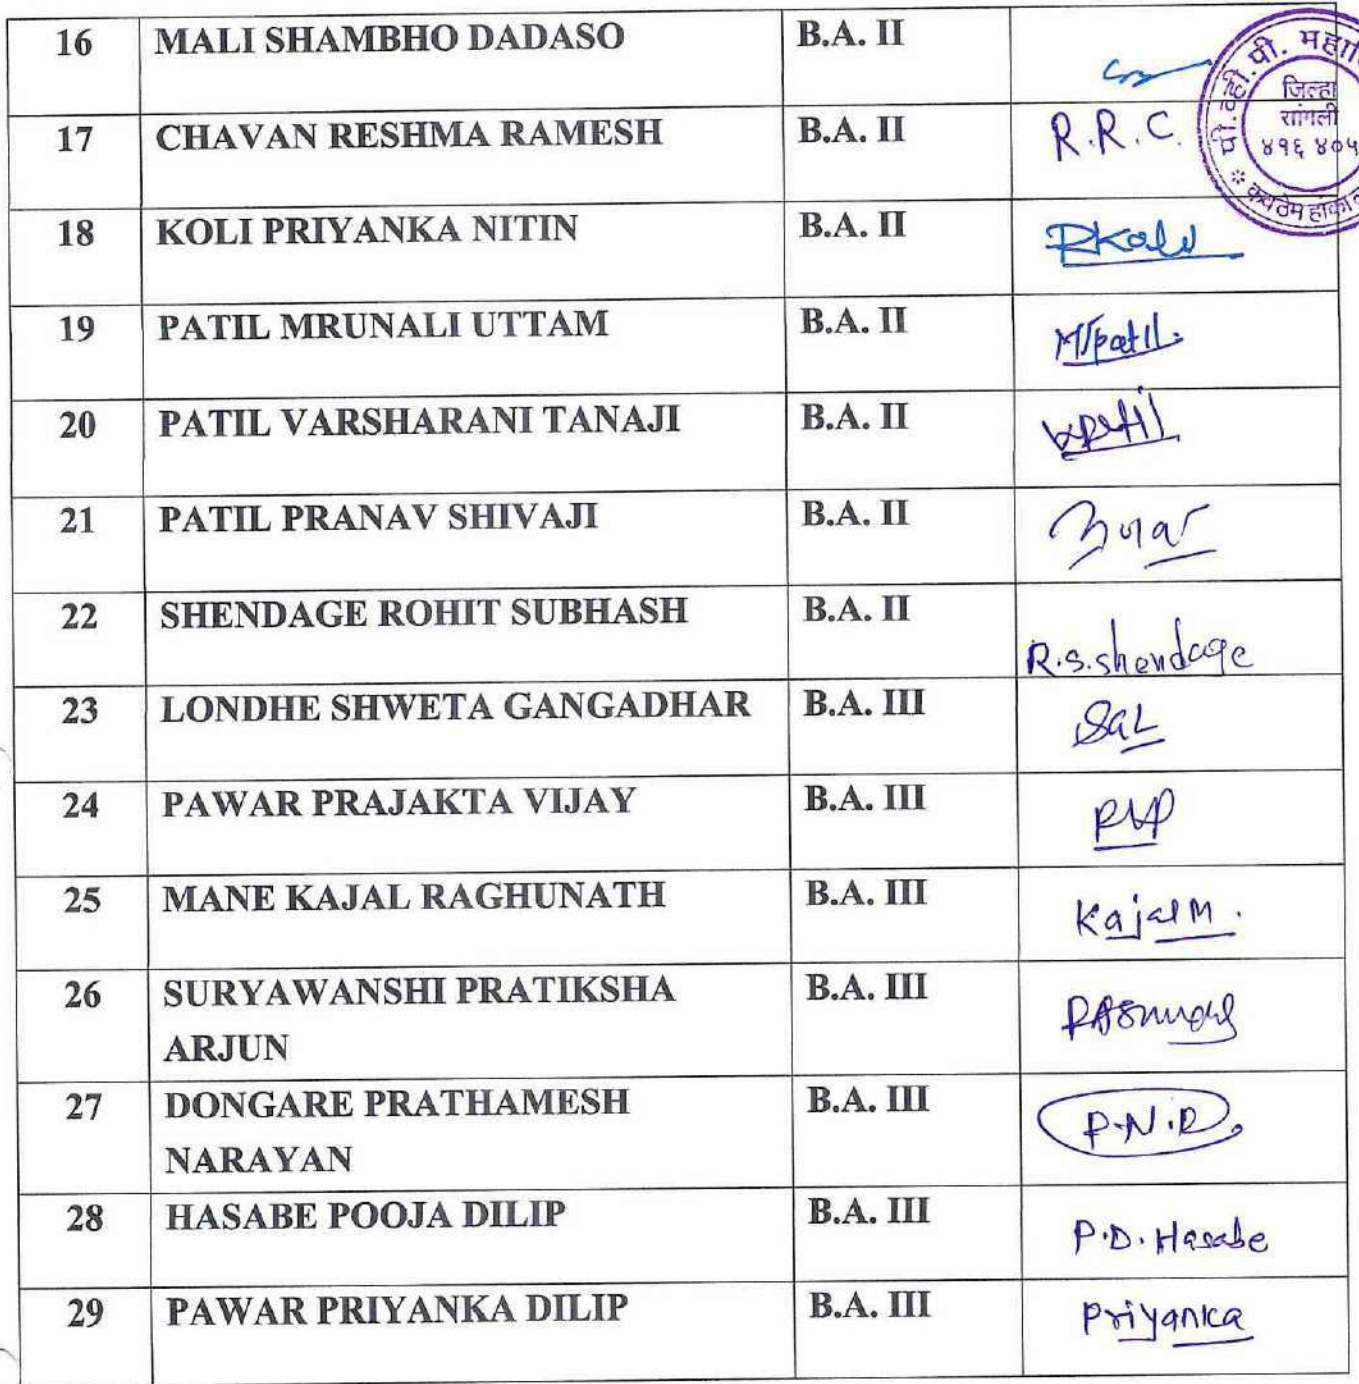 16 MALI SHAMBHO DADASO B.A. II
पी. व्ही. पी. महावि
जिल्हा
सांगली
४१६ ४०५
17 CHAVAN RESHMA RAMESH B.A. II R.R.C.
18 KOLI PRIYANKA NITIN B.A. II PKoli
19 PATIL MRUNALI UTTAM B.A. II MPatil.
20 PATIL VARSHARANI TANAJI B.A. II
21 PATIL PRANAV SHIVAJI B.A. II
22 SHENDAGE ROHIT SUBHASH B.A. II R.S.shendage
23 LONDHE SHWETA GANGADHAR B.A. III SGL
24 PAWAR PRAJAKTA VIJAY B.A. III PVP
25 MANE KAJAL RAGHUNATH B.A. III Kajal M.
26 SURYAWANSHI PRATIKSHA B.A. III
ARJUN
27 DONGARE PRATHAMESH B.A. III P.N.D.
NARAYAN
28 HASABE POOJA DILIP B.A. III P.D. Hasabe
29 PAWAR PRIYANKA DILIP B.A. III Priyanka